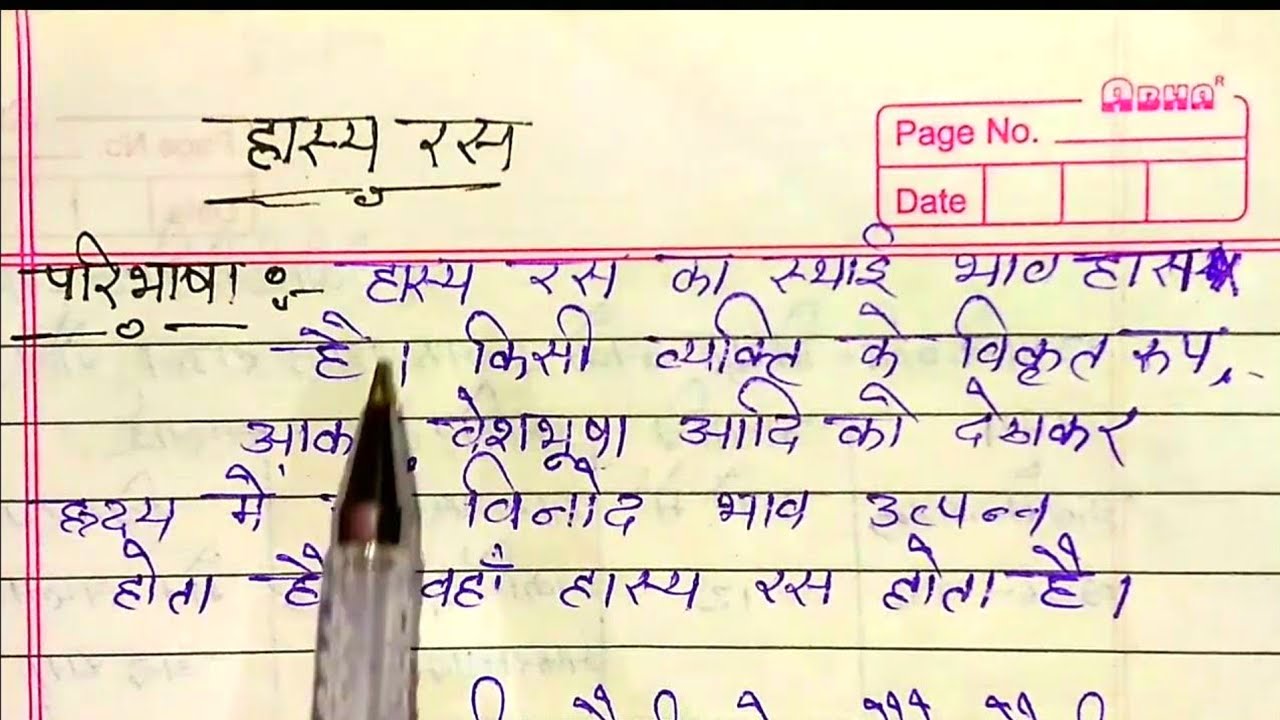 हास्य रस
ABHA
Page No.
Date
परिभाषा :- हास्य रस का स्थाई भाव हास
है। किसी व्यक्ति के विकृत रुप,
वेशभूषा आदि को देखकर
हृदय में विनोद भाव उत्पन्न
होता है वहाँ हास्य रस होता है।